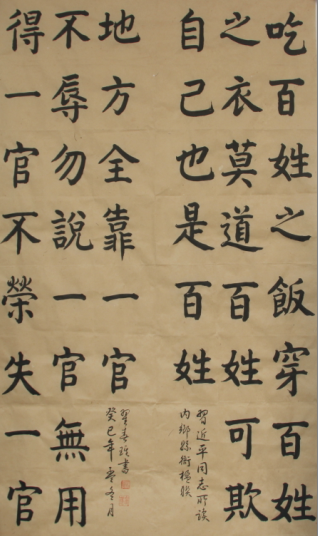 吃百姓之飯穿百姓
之衣莫道百姓可欺
自己也是百姓
得一官不榮失一官
不辱勿說一官無用
地方全靠一官
習近平同志所談
内鄉縣衙楹联
書
癸巳年冬月